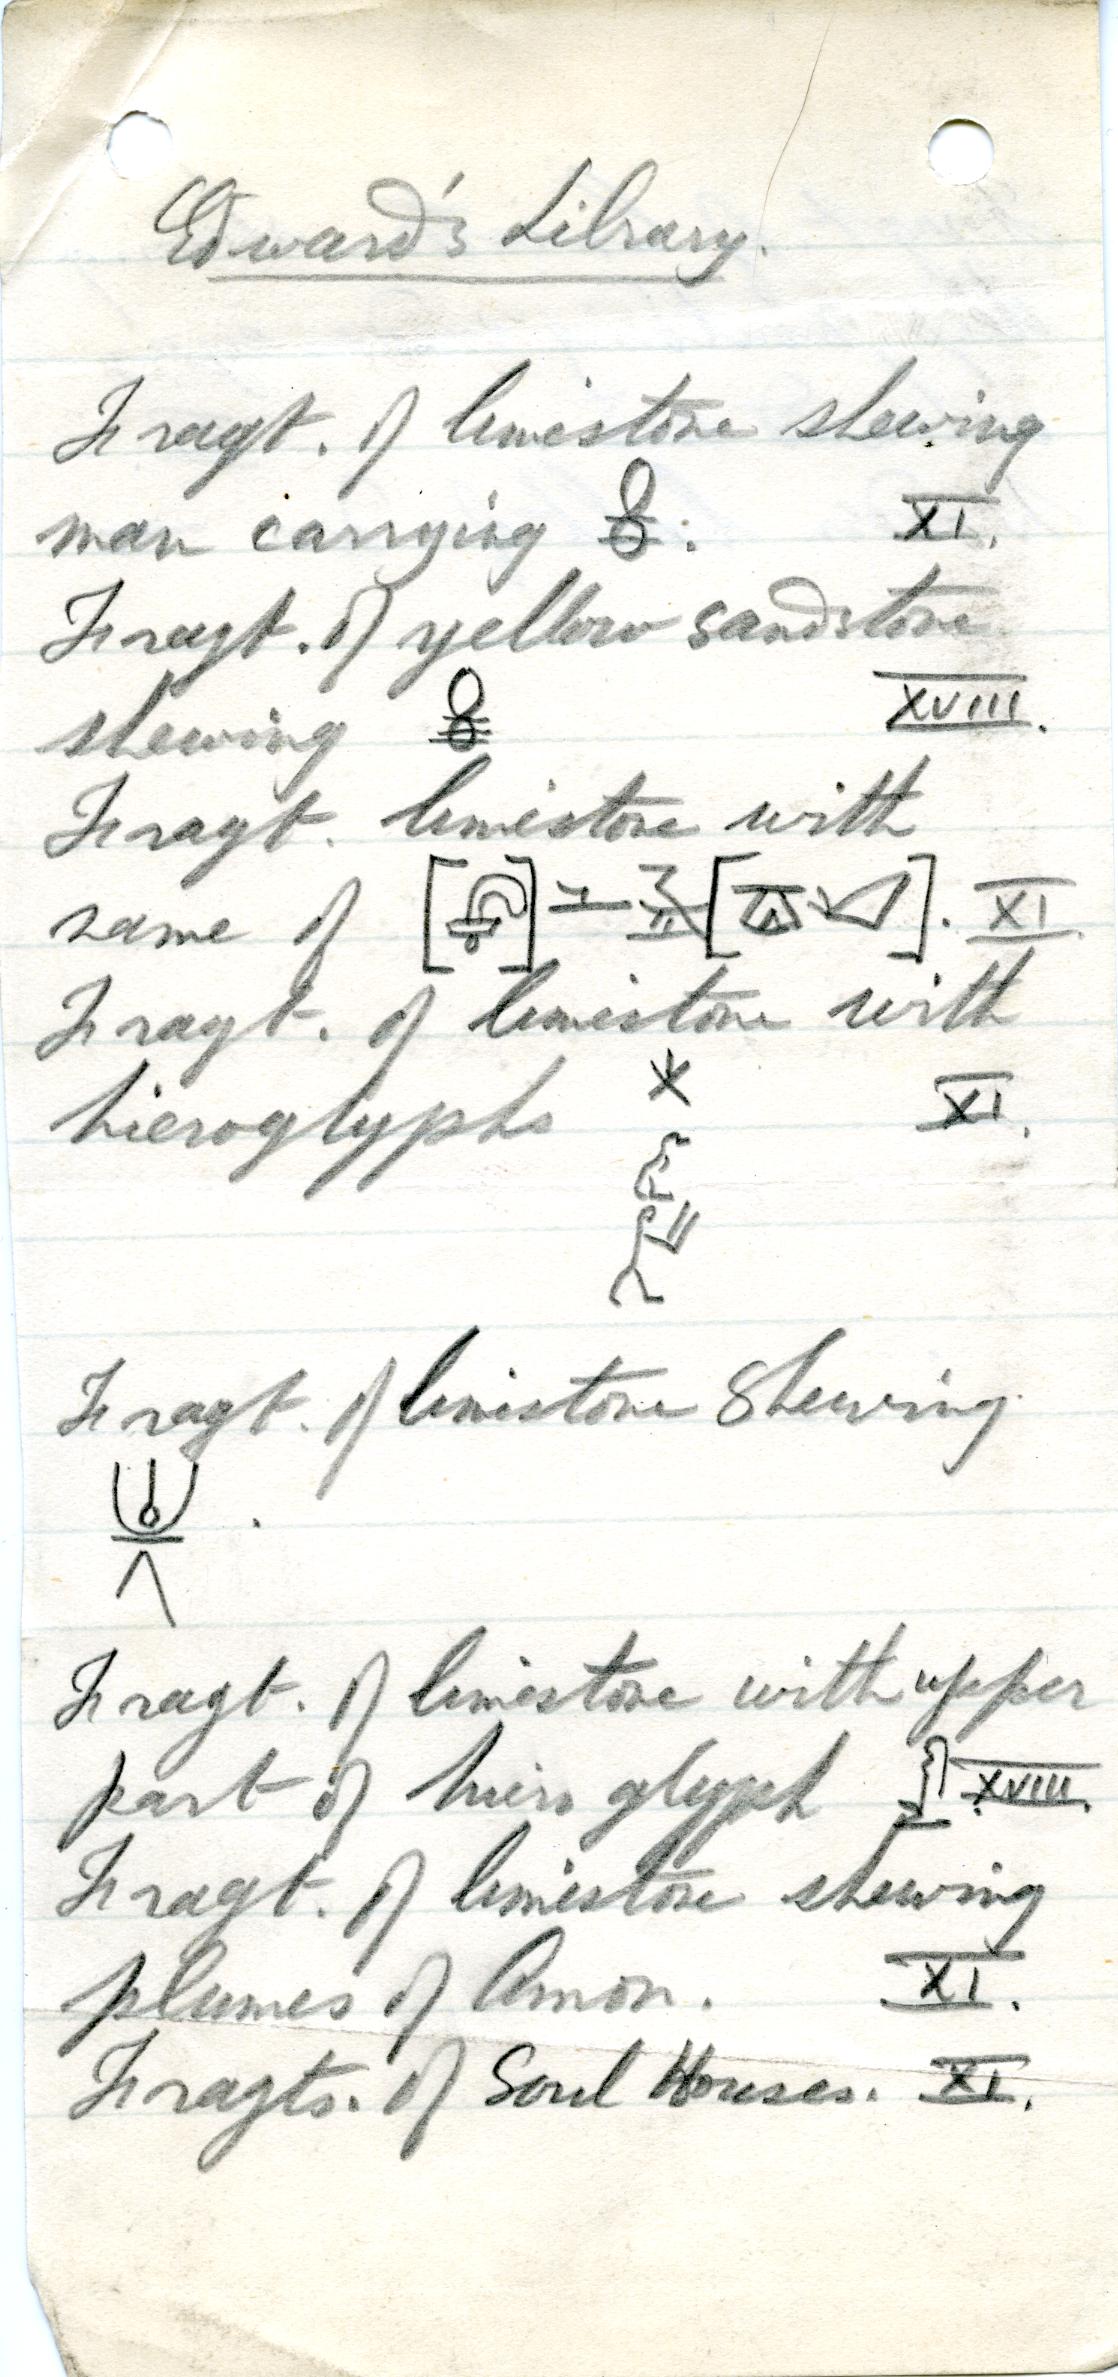 Edward's Library.
Fragt. of limestone shewing
man carrying : XI.
Fragt. of yellow sandstone
shewing XVIII.
Fragt. limestone with
name of [ ] [ ]. XI.
Fragt. of limestone with
hieroglyphs XI.
Fragt. of limestone Shewing
.
Fragt. of limestone with upper
part of hieroglyph XVIII.
Fragt. of limestone shewing
plumes of Amon. XI.
Fragts. of Soul Houses. XI.